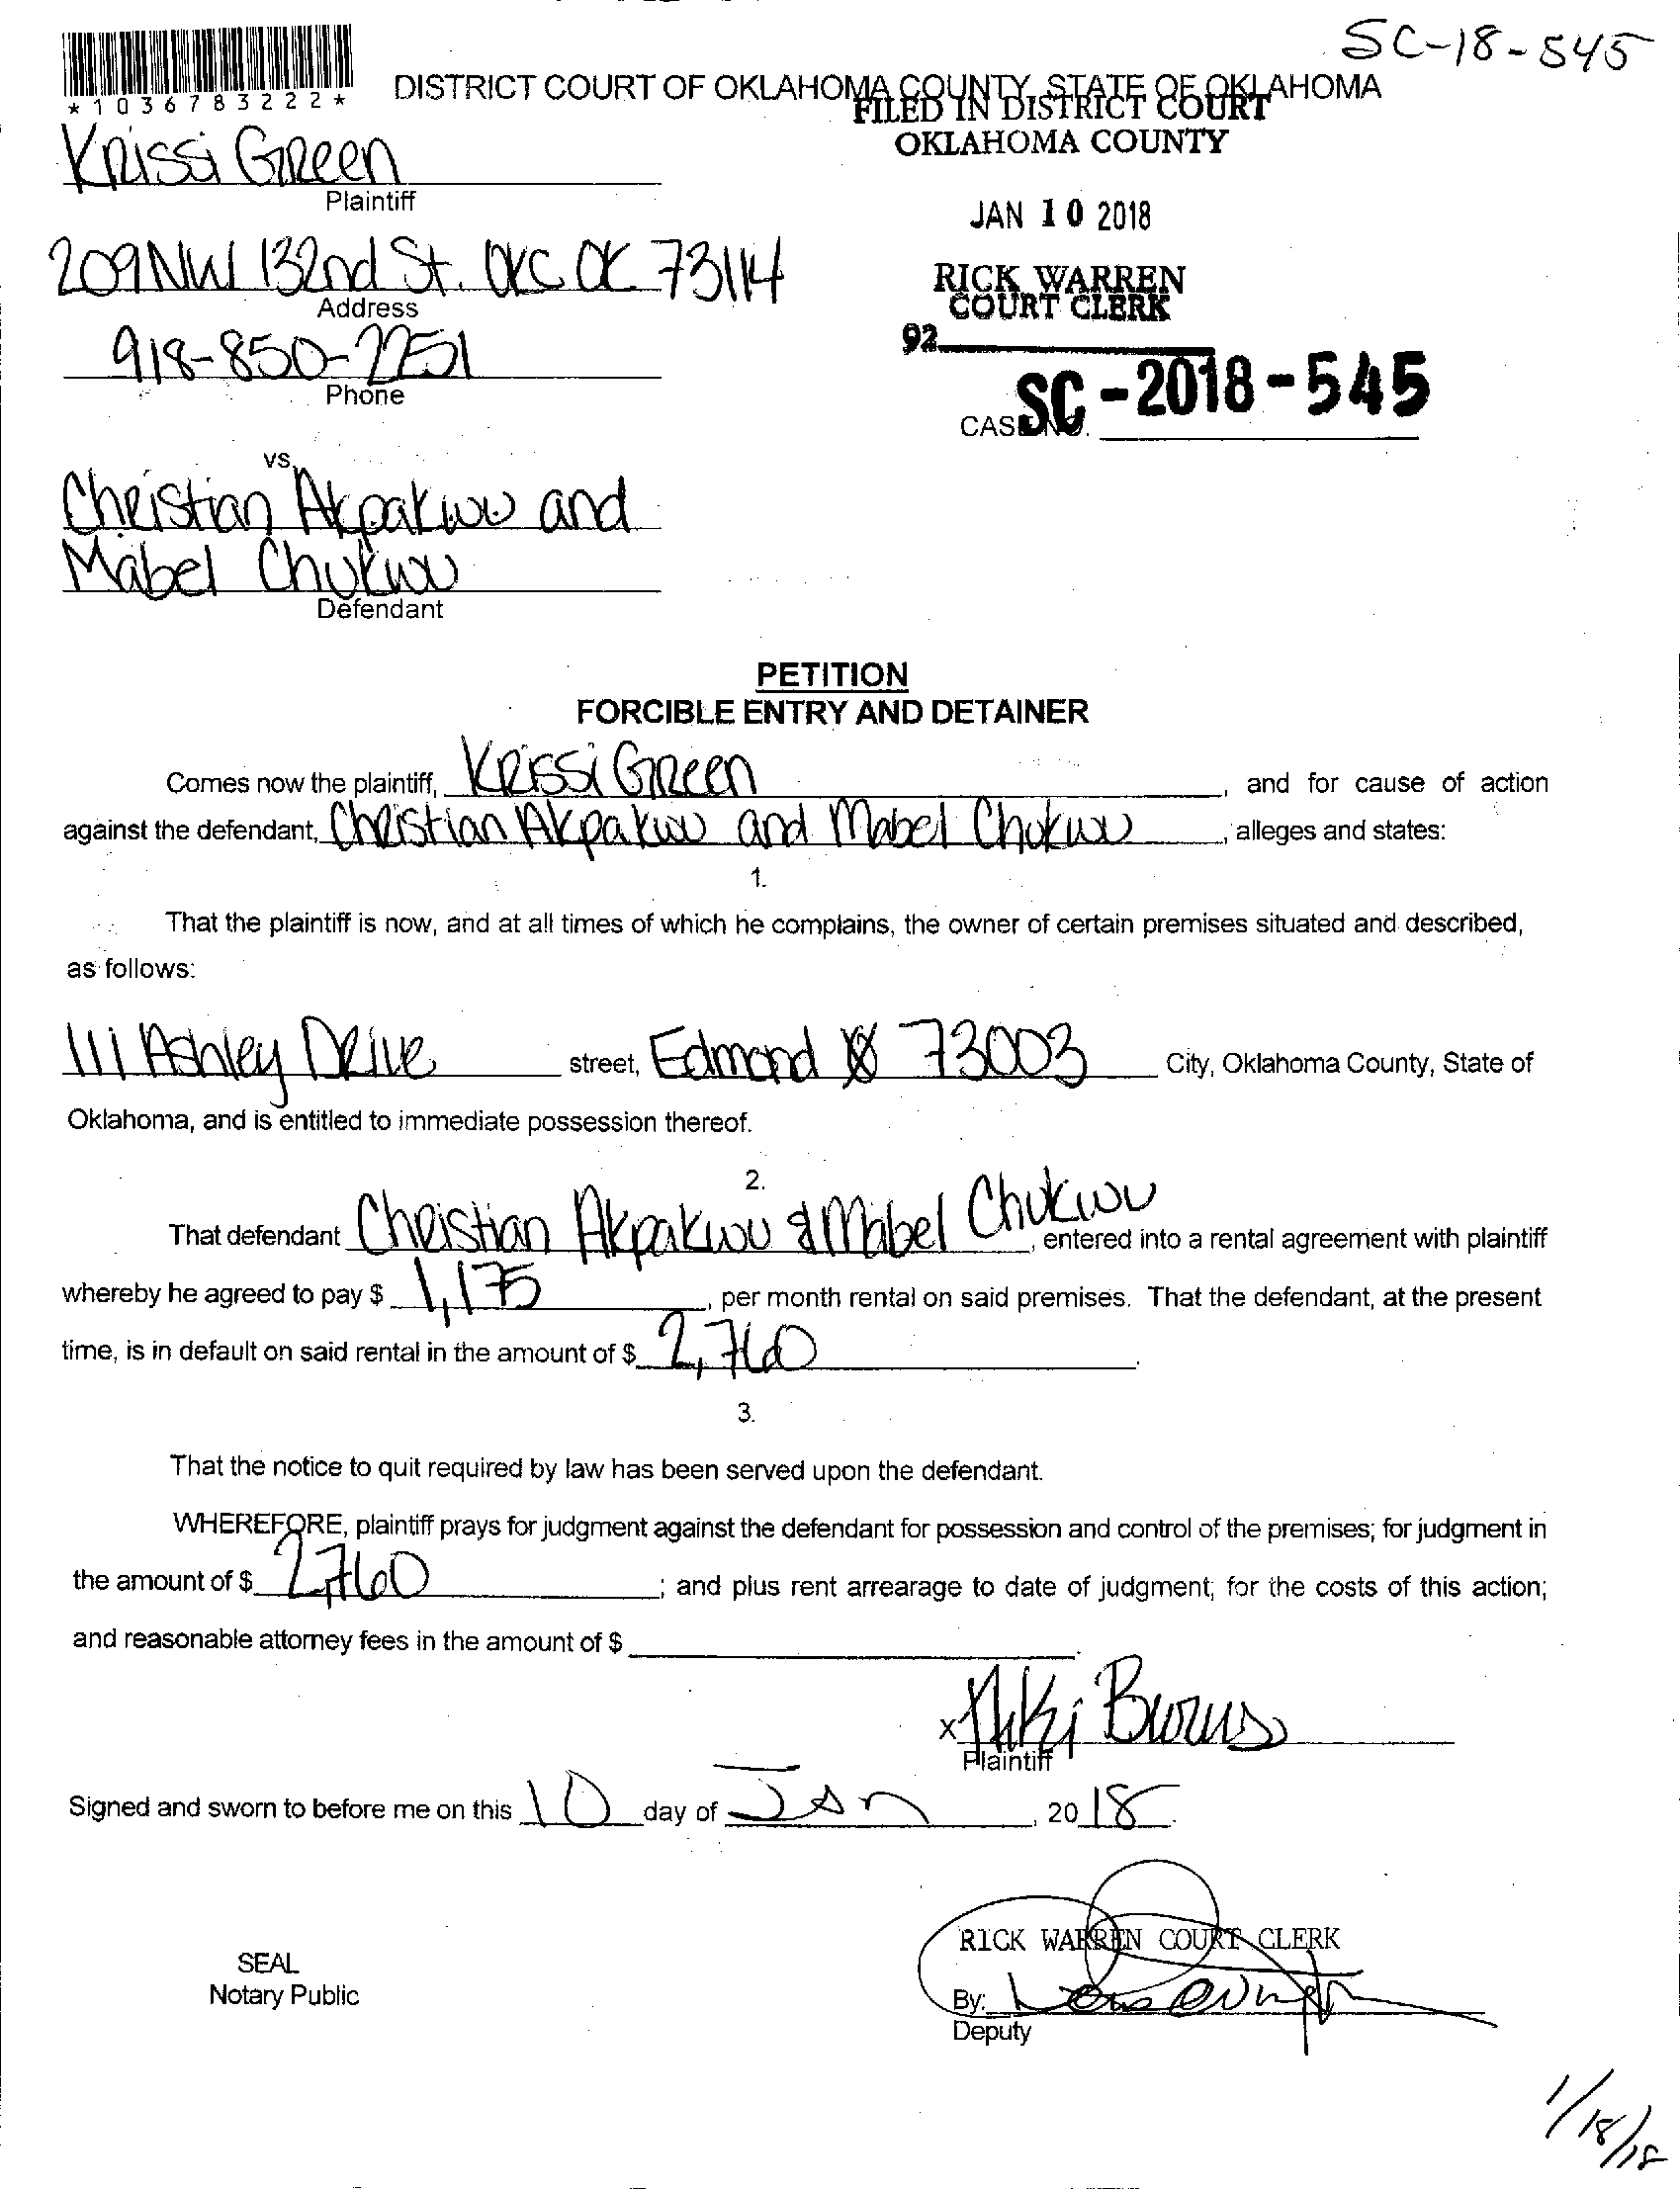 SC-18-545
*1036783222*
DISTRICT COURT OF OKLAHOMA COUNTY, STATE OF OKLAHOMA
FILED IN DISTRICT COURT
OKLAHOMA COUNTY
Krissi Green
Plaintiff
JAN 10 2018
209 NW 132nd St. OKC OK 73114
Address
RICK WARREN
COURT CLERK
918-850-2251
Phone
92
SC-2018-545
CASE NO.
vs.
Christian Akpakwu and
Mabel Chukwu
Defendant
PETITION
FORCIBLE ENTRY AND DETAINER
Comes now the plaintiff, Krissi Green, and for cause of action
against the defendant, Christian Akpakwu and Mabel Chukwu, alleges and states:
1.
That the plaintiff is now, and at all times of which he complains, the owner of certain premises situated and described,
as follows:
111 Ashley Drive street, Edmond 73003 City, Oklahoma County, State of
Oklahoma, and is entitled to immediate possession thereof.
2.
That defendant Christian Akpakwu & Mabel Chukwu, entered into a rental agreement with plaintiff
whereby he agreed to pay $ 1,175, per month rental on said premises. That the defendant, at the present
time, is in default on said rental in the amount of $ 2,760.
3.
That the notice to quit required by law has been served upon the defendant.
WHEREFORE, plaintiff prays for judgment against the defendant for possession and control of the premises; for judgment in
the amount of $ 2,760; and plus rent arrearage to date of judgment; for the costs of this action;
and reasonable attorney fees in the amount of $
x Niki Burns
Plaintiff
Signed and sworn to before me on this 10 day of Jan, 2018.
RICK WARREN COURT CLERK
SEAL
Notary Public
By:
Deputy
1/18/18